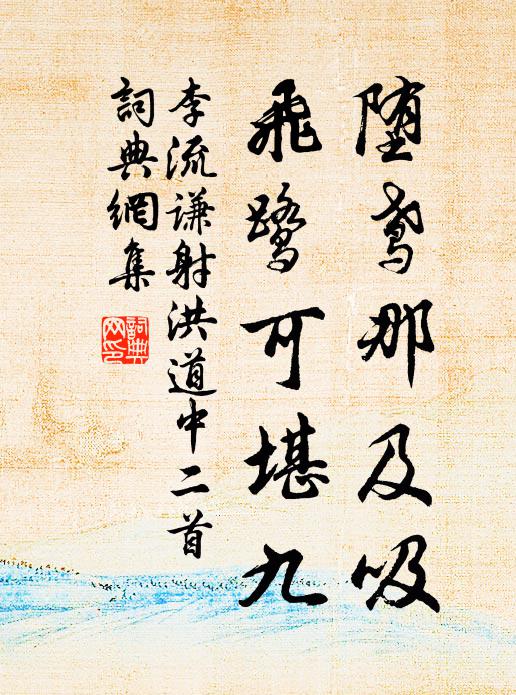 堕鸢那及吸
飛鹭可堪九
李流谦射洪道中二首
詞典網集
詞典网印